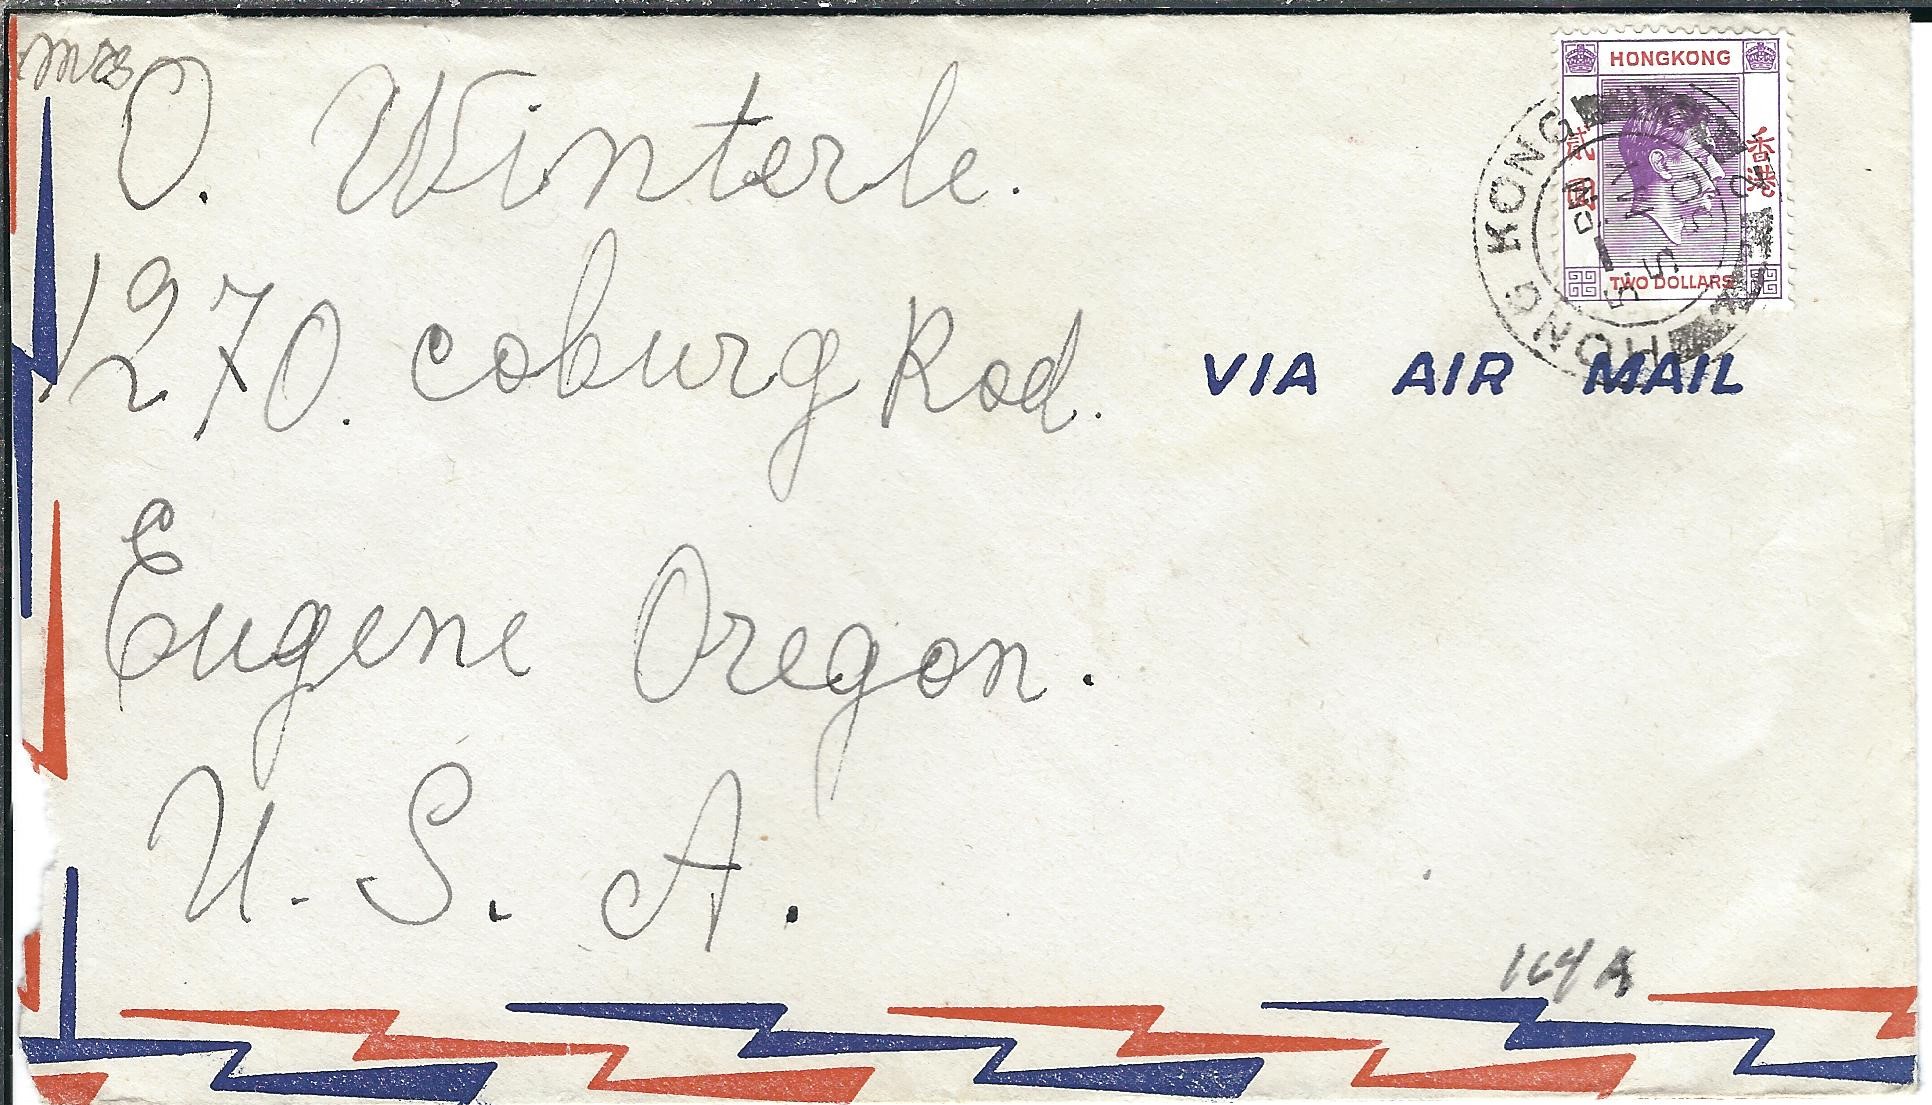 Mrs O. Winterle.
1270. Coburg Rod.
Eugene Oregon.
U. S. A.
HONGKONG
貳圓
香港
TWO DOLLARS
HONG KONG
VIA AIR MAIL
164A